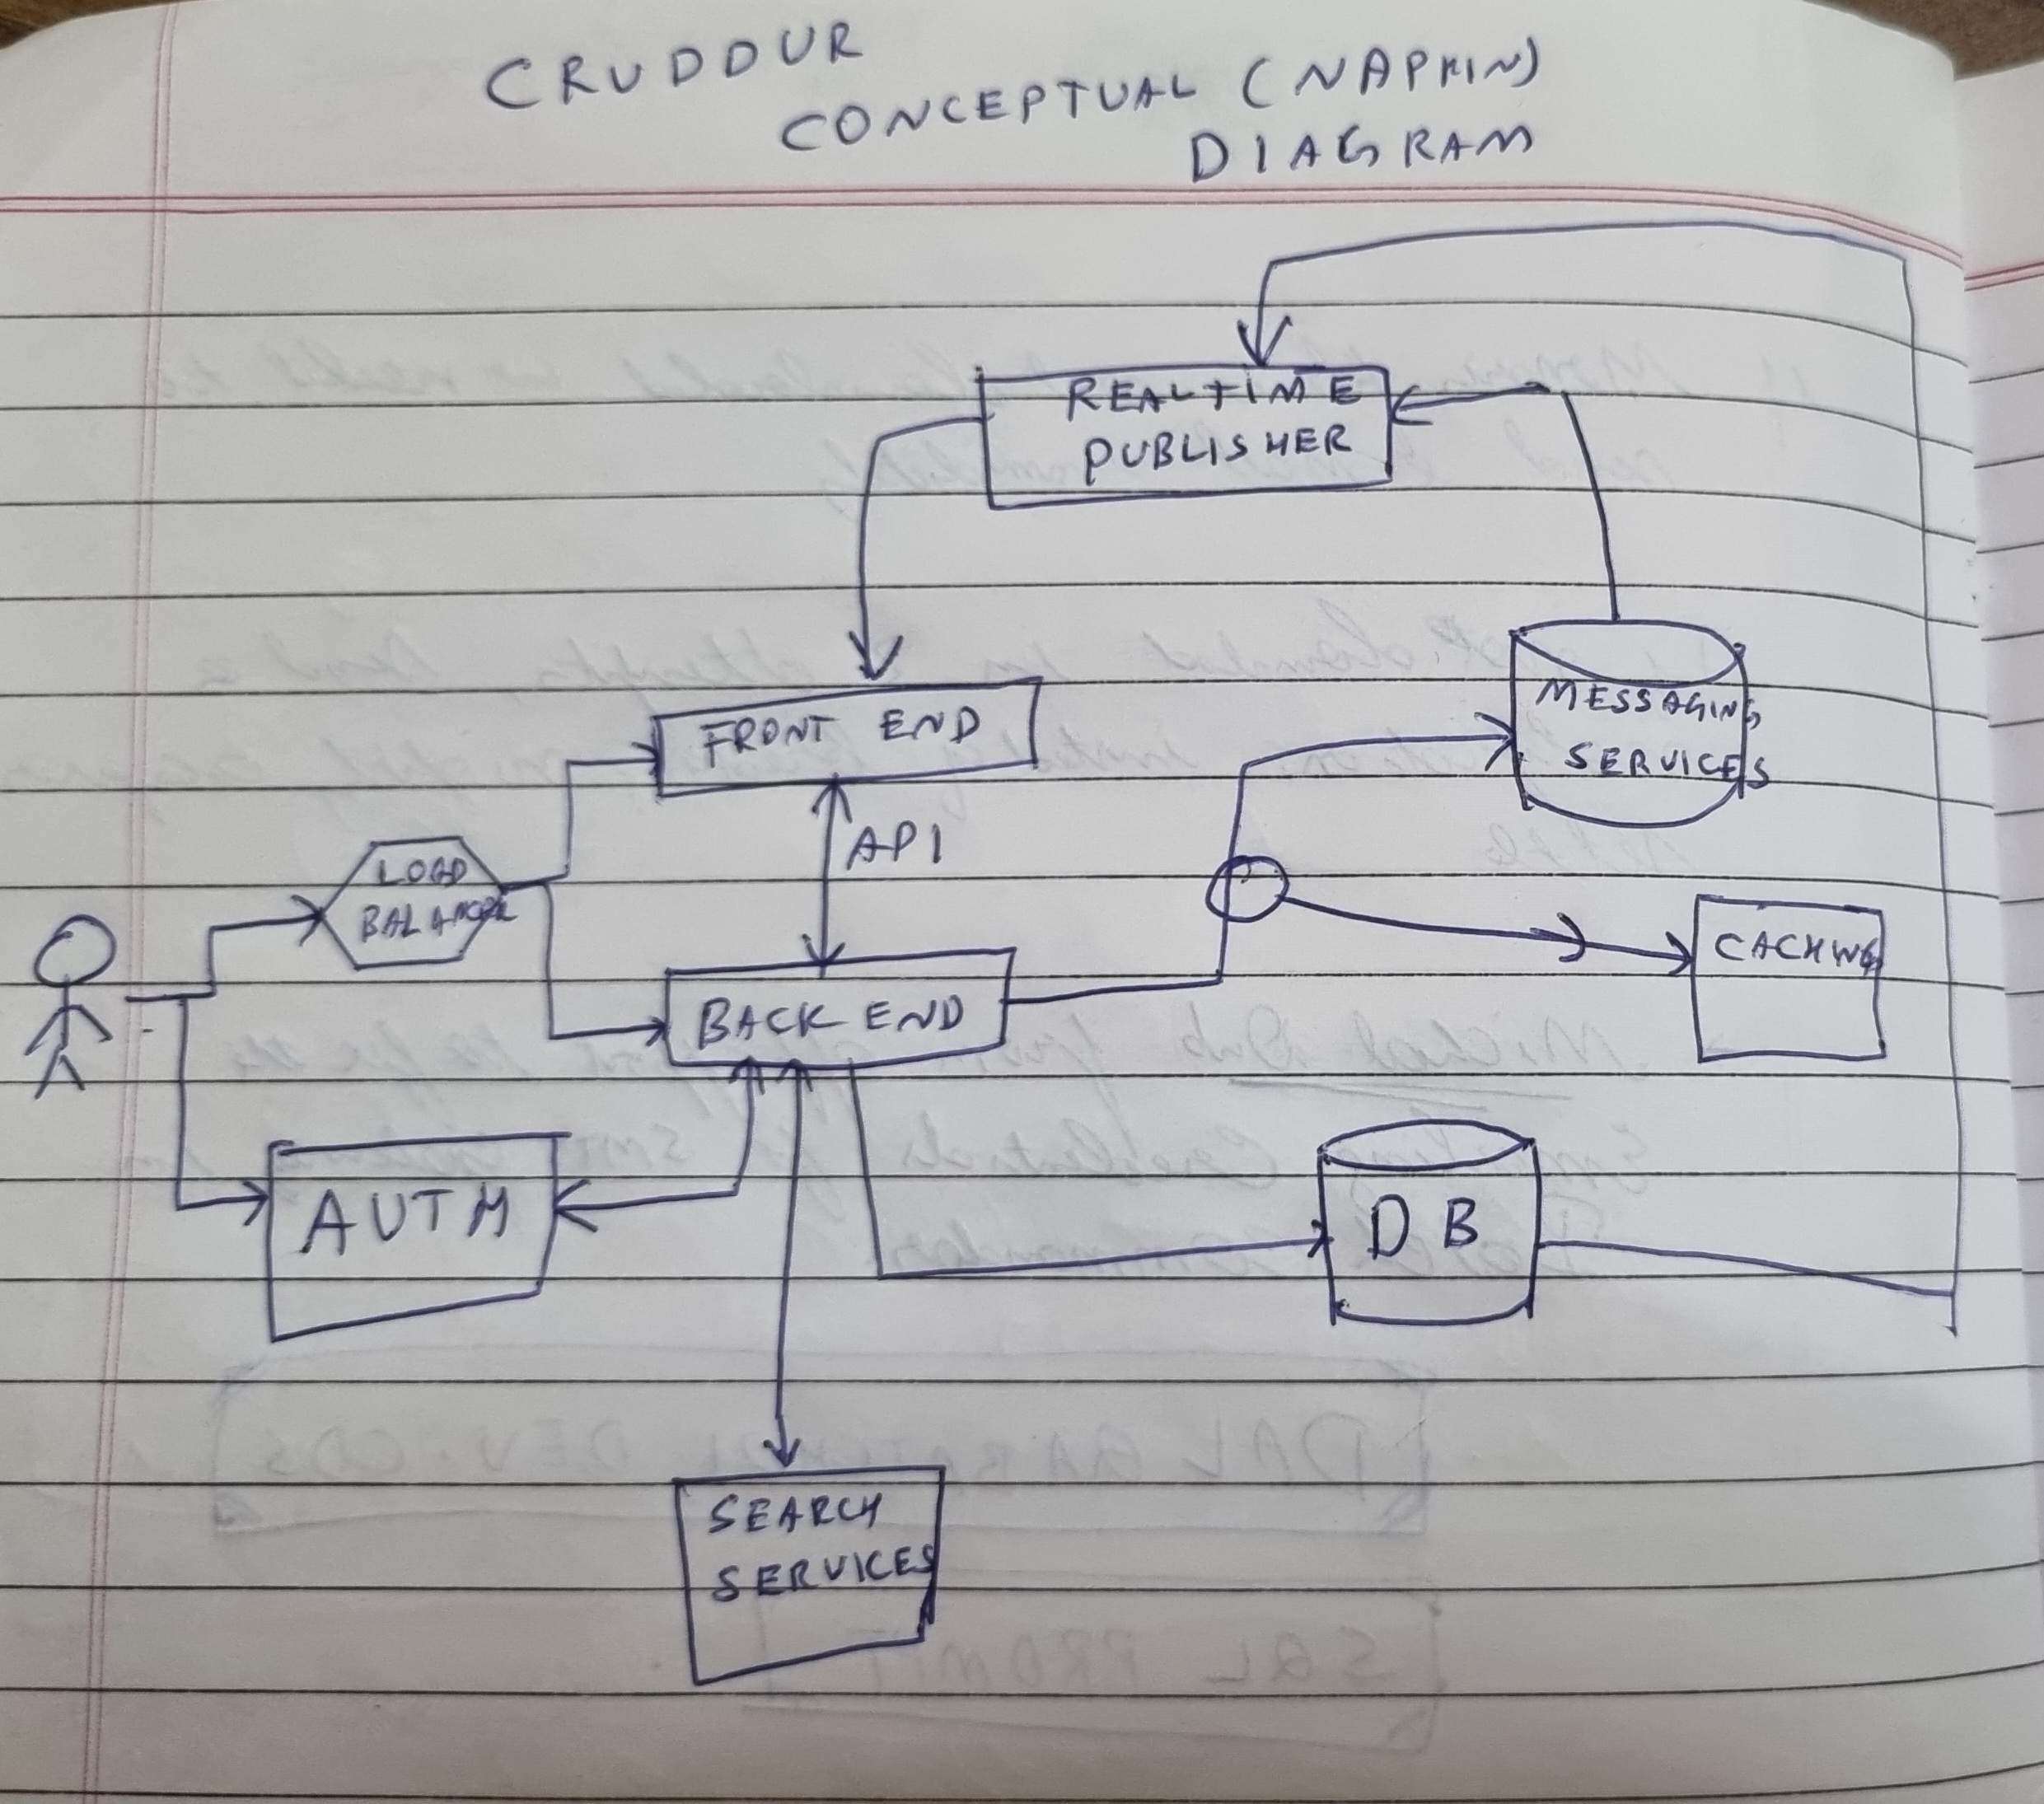 CRUDDUR
CONCEPTUAL (NAPKIN)
DIAGRAM
REALTIME
PUBLISHER
FRONT END
MESSAGING
SERVICES
API
LOAD
BALANCER
CACHING
BACK END
AUTH
DB
SEARCH
SERVICES